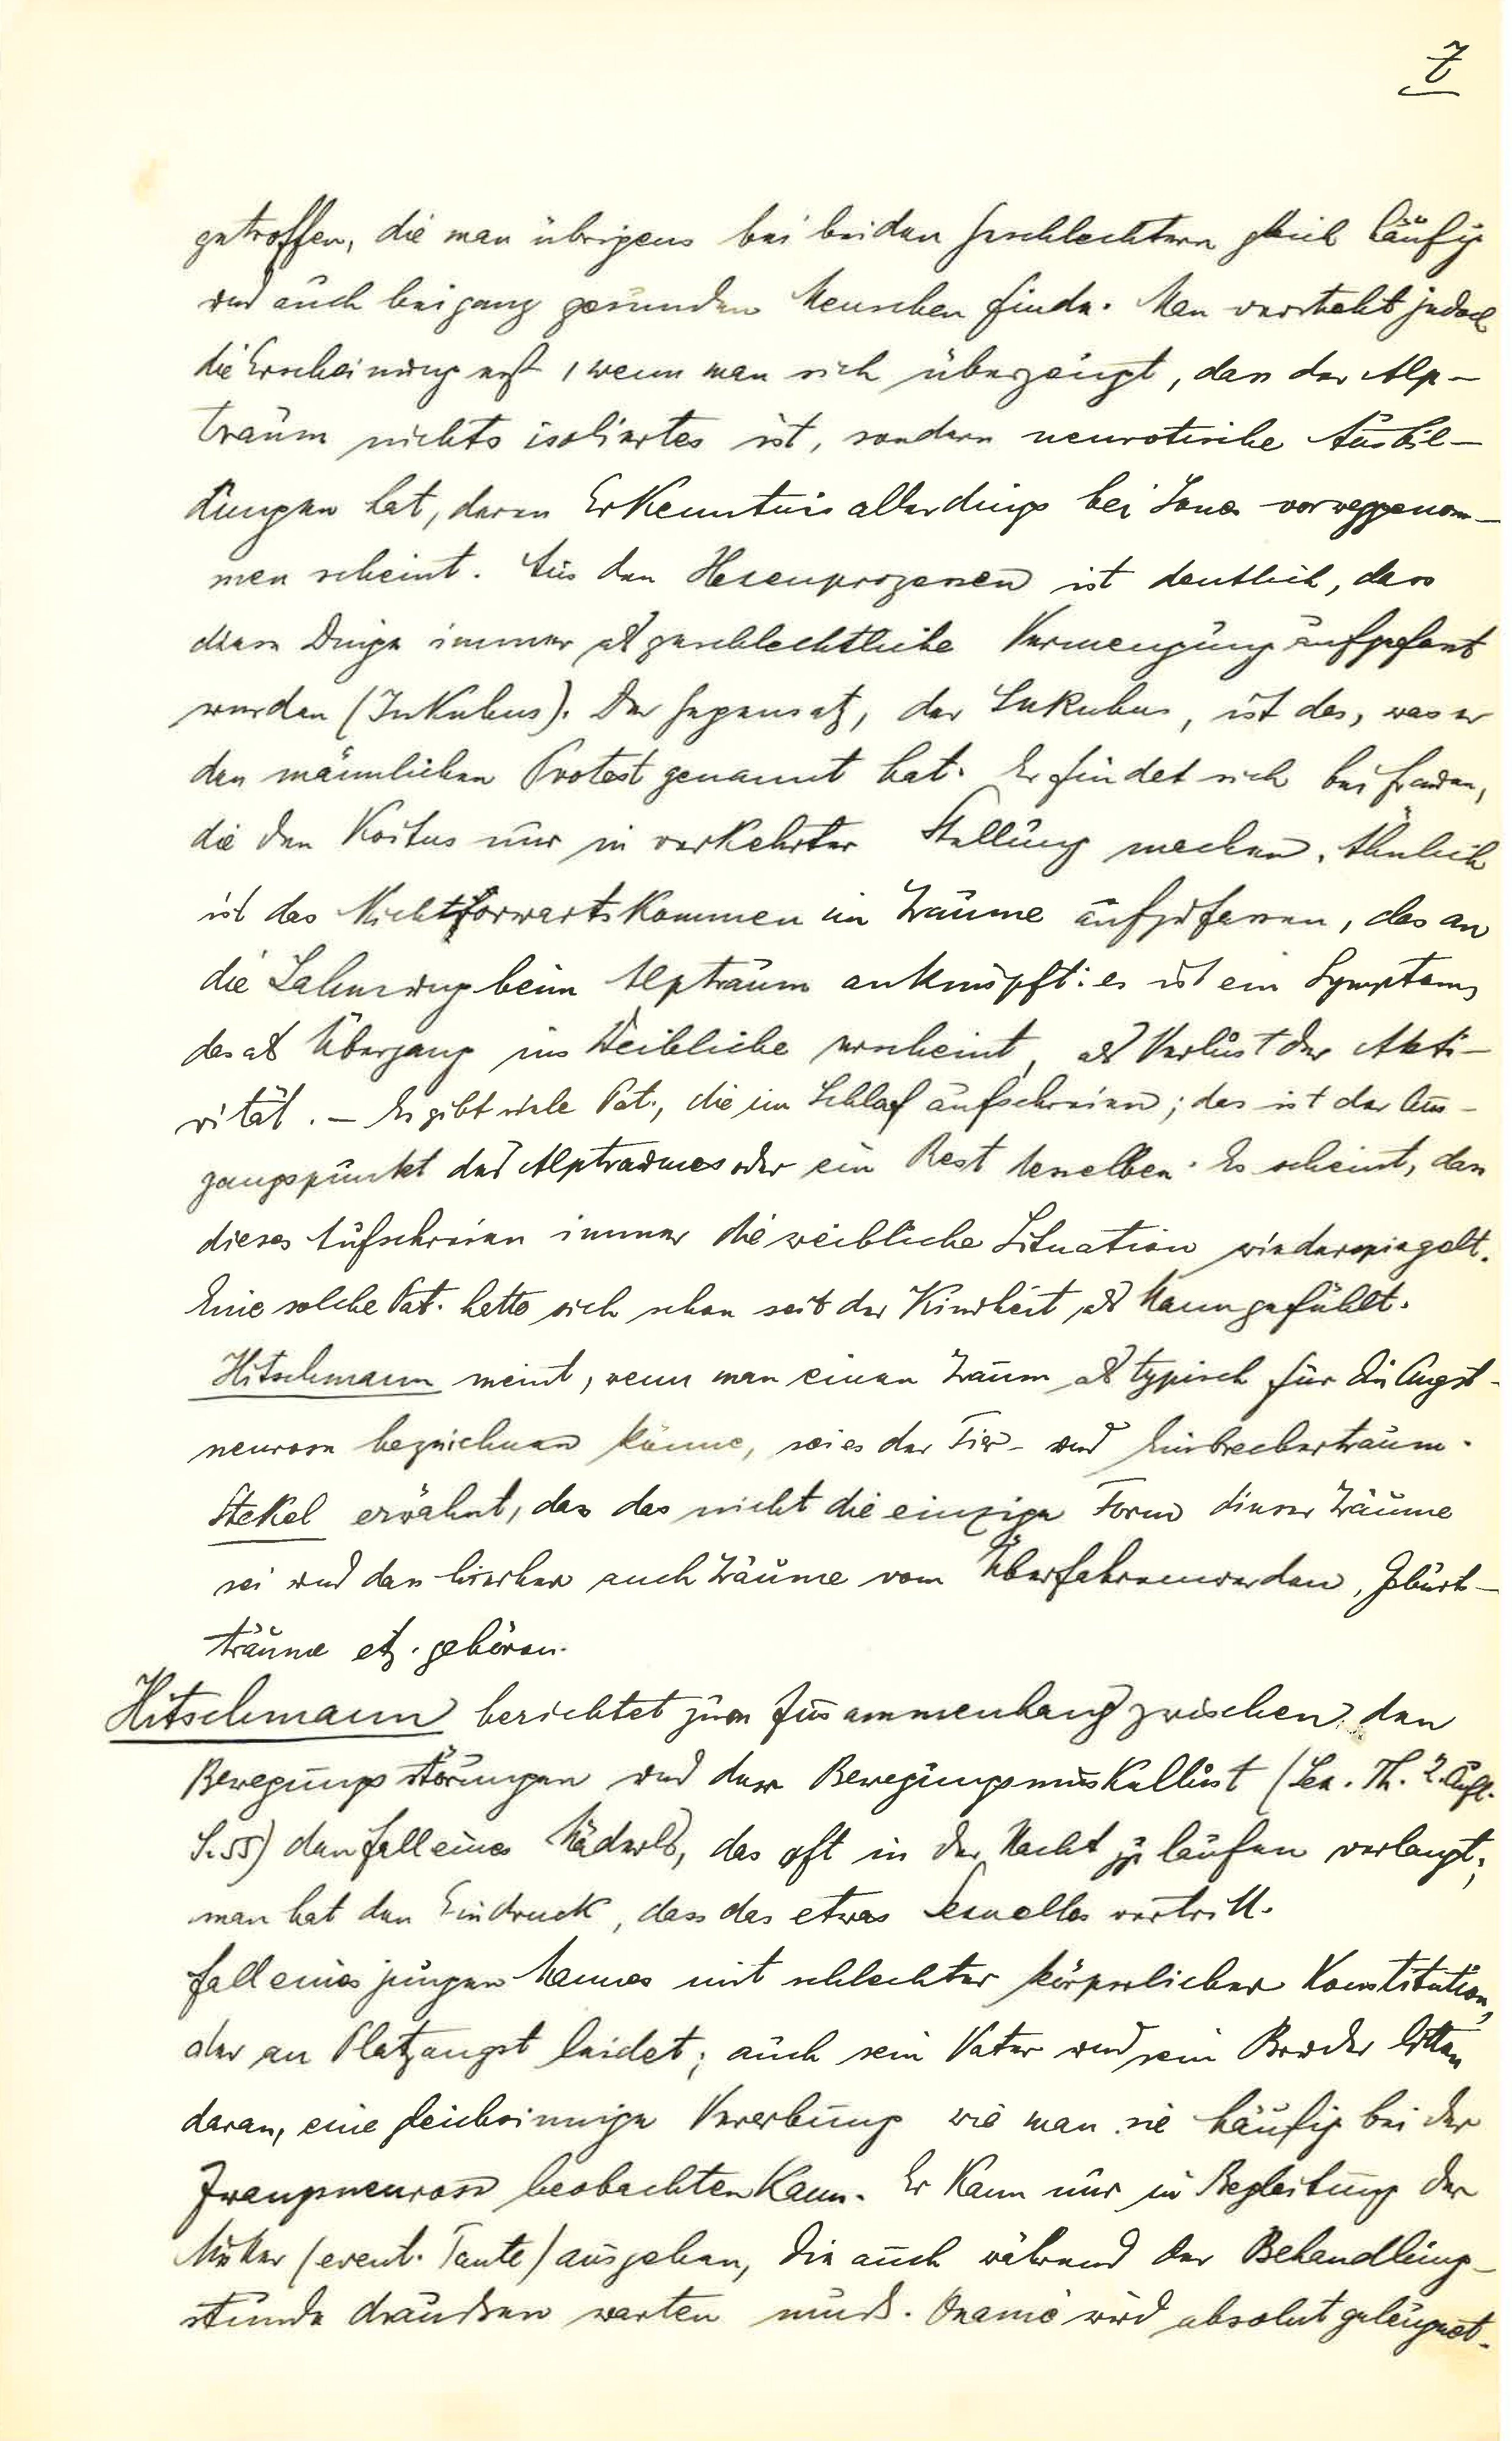 7
getroffen, die man übrigens bei beiden Geschlechtern gleich häufig
und auch bei ganz gesunden Menschen finde. Man versteht jedoch
die Erscheinung erst, wenn man sich überzeugt, dass der Alp-
traum nichts isoliertes ist, sondern neurotische Ausbil-
dungen hat, deren Erkenntnis allerdings bei Jones vorweggenom-
men scheint. Aus den Hexenprozessen ist deutlich, dass
diese Dinge immer als geschlechtliche Vermengung aufgefasst
wurden (Inkubus). Der Gegensatz, der Sukubus, ist das, was er
den männlichen Protest genannt hat. Er findet sich bei Frauen,
die den Koitus nur in verkehrter Stellung machen. Ähnlich
ist das Nichtvorwärtskommen im Traume aufzufassen, das an
die Lähmung beim Alptraum anknüpft: es ist ein Symptom,
das als Übergang ins Weibliche erscheint, als Verlust der Akti-
vität. – Es gibt viele Pat., die im Schlaf aufschreien; das ist der Aus-
gangspunkt des Alptraumes oder ein Rest desselben. Es scheint, dass
dieses Aufschreien immer die weibliche Situation wiederspiegelt.
Eine solche Pat. hatte sich schon seit der Kindheit als Mann gefühlt.
Hitschmann meint, wenn man einen Traum als typisch für die Angst-
neurose bezeichnen könne, sei es der Tier- und Einbrechertraum.
Stekel erwähnt, dass das nicht die einzige Form dieser Träume
sei und dass hierher auch Träume vom Überfahrenwerden, Geburts-
träume etz. gehören.
Hitschmann berichtet zum Zusammenhang zwischen den
Bewegungsstörungen und der Bewegungsmuskellust (Sex. Th. 2. Aufl.
S. 55) den Fall eines Mäderls, das oft in der Nacht zu laufen verlangt;
man hat den Eindruck, dass das etwas Sexuelles vertritt.
Fall eines jungen Mannes mit schlechter körperlicher Konstitution,
der an Platzangst leidet; auch sein Vater und sein Bruder litten
daran, eine gleichsinnige Vererbung wie man sie häufig bei der
Zwangsneurose beobachten kann. Er kann nur in Begleitung der
Mutter (event. Tante) ausgehen, die auch während der Behandlungs-
stunde draussen warten muss. Onanie wird absolut geleugnet.